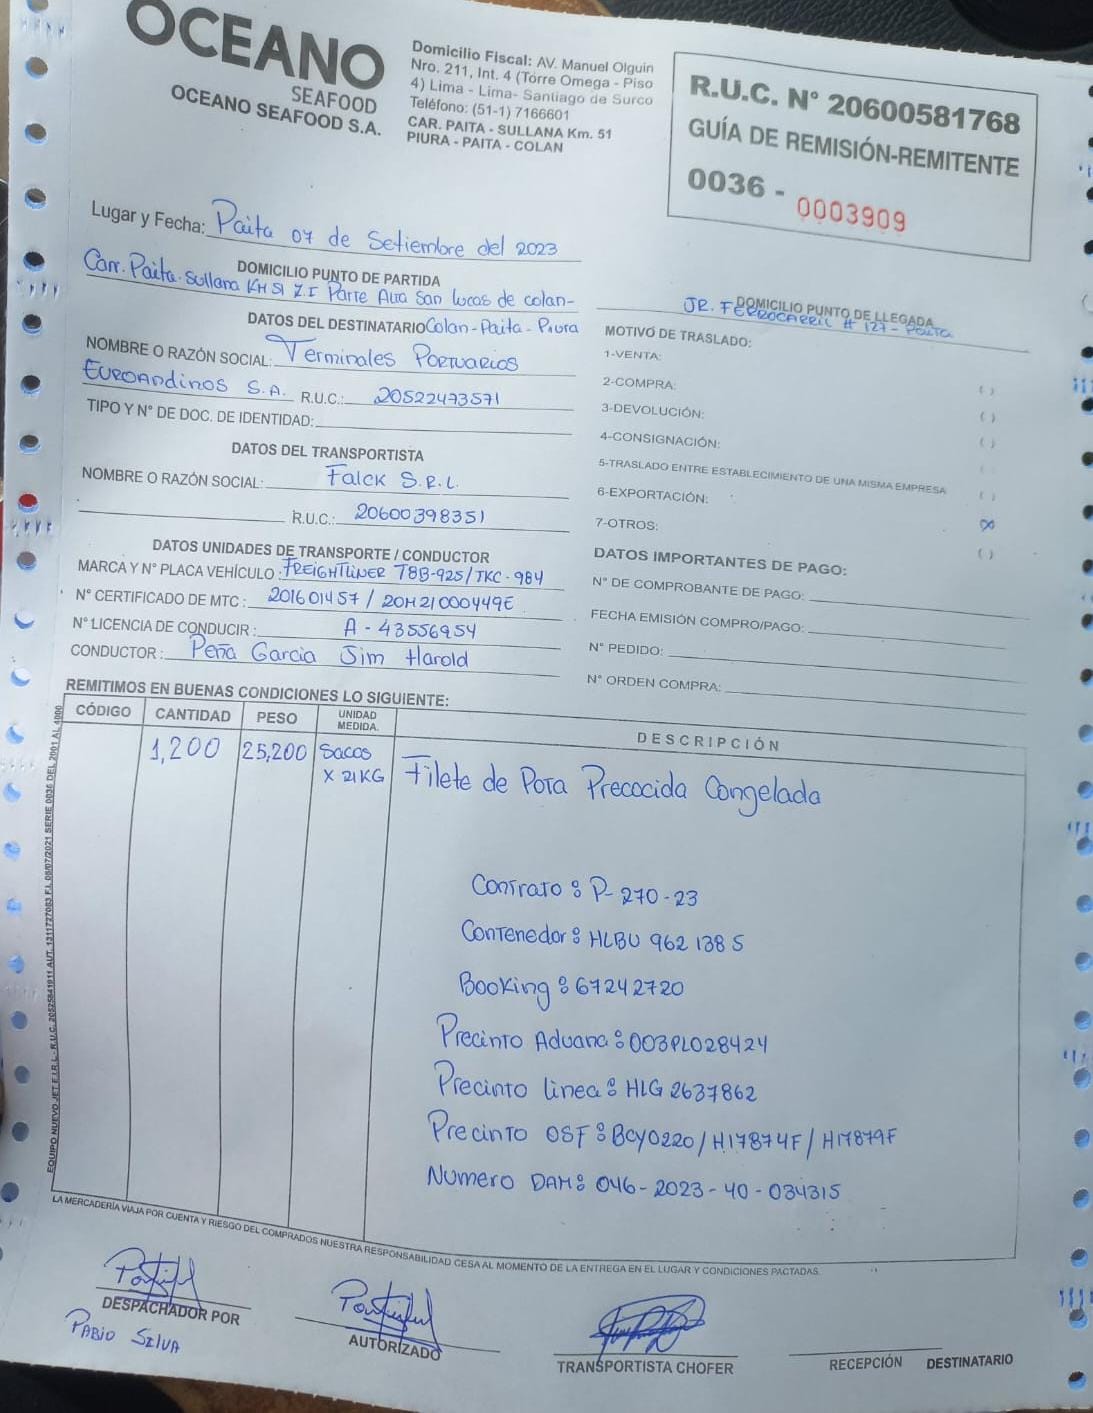 OCEANO
SEAFOOD
OCEANO SEAFOOD S.A.
Domicilio Fiscal: AV. Manuel Olguin
Nro. 211, Int. 4 (Torre Omega - Piso
4) Lima - Lima- Santiago de Surco
Teléfono: (51-1) 7166601
CAR. PAITA - SULLANA Km. 51
PIURA - PAITA - COLAN
R.U.C. N° 20600581768
GUÍA DE REMISIÓN-REMITENTE
0036 - 0003909
Lugar y Fecha: Paita 07 de Setiembre del 2023
DOMICILIO PUNTO DE PARTIDA
Carr. Paita-Sullana KM 51 Z.I Parte Alta San Lucas de colan-
Colan-Paita-Piura
DOMICILIO PUNTO DE LLEGADA
JR. FERROCARRIL # 127 - Paita
DATOS DEL DESTINATARIO
NOMBRE O RAZÓN SOCIAL: Terminales Portuarios
Euroandinos S.A. R.U.C.: 20522473571
TIPO Y N° DE DOC. DE IDENTIDAD:
DATOS DEL TRANSPORTISTA
NOMBRE O RAZÓN SOCIAL: Falck S.R.L.
R.U.C.: 20600398351
DATOS UNIDADES DE TRANSPORTE / CONDUCTOR
MARCA Y N° PLACA VEHÍCULO: FREIGHTLINER T8B-925/TKC-984
N° CERTIFICADO DE MTC: 201601457 / 20M21000449E
N° LICENCIA DE CONDUCIR: A - 43556954
CONDUCTOR: Peña Garcia Jim Harold
MOTIVO DE TRASLADO:
1-VENTA: ( )
2-COMPRA: ( )
3-DEVOLUCIÓN: ( )
4-CONSIGNACIÓN:
5-TRASLADO ENTRE ESTABLECIMIENTO DE UNA MISMA EMPRESA ( )
6-EXPORTACIÓN: (X)
7-OTROS: ( )
DATOS IMPORTANTES DE PAGO:
N° DE COMPROBANTE DE PAGO:
FECHA EMISIÓN COMPRO/PAGO:
N° PEDIDO:
N° ORDEN COMPRA:
REMITIMOS EN BUENAS CONDICIONES LO SIGUIENTE:
CÓDIGO CANTIDAD PESO UNIDAD MEDIDA. DESCRIPCIÓN
1,200 25,200 Sacos x 21KG Filete de Pota Precocida Congelada
Contrato: P-270-23
Contenedor: HLBU 962 138 5
Booking: 67242720
Precinto Aduana: 003PL028424
Precinto linea: HLG 2637862
Precinto OSF: BCY0220/H17874F/H17879F
Numero DAM: 046-2023-40-034315
EQUIPO NUEVO JET E.I.R.L. - R.U.C. 20525841911 AUT. 1311727083 F.I. 08/07/2021 SERIE 0036 DEL 2001 AL 4000
LA MERCADERÍA VIAJA POR CUENTA Y RIESGO DEL COMPRADOS NUESTRA RESPONSABILIDAD CESA AL MOMENTO DE LA ENTREGA EN EL LUGAR Y CONDICIONES PACTADAS.
DESPACHADOR POR
Pabio Silva
AUTORIZADO
TRANSPORTISTA CHOFER
RECEPCIÓN DESTINATARIO